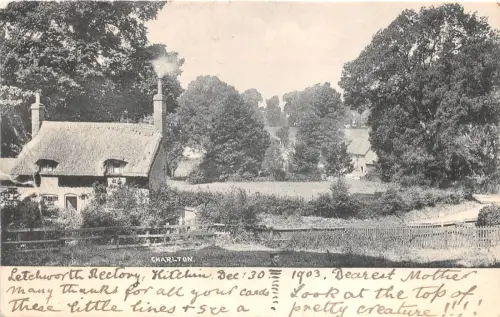 CHARLTON.
Letchworth Rectory, Hitchin, Dec: 30 1903, Dearest Mother
Many thanks for all your cards Look at the top of
these little lines & see a pretty creature!!!